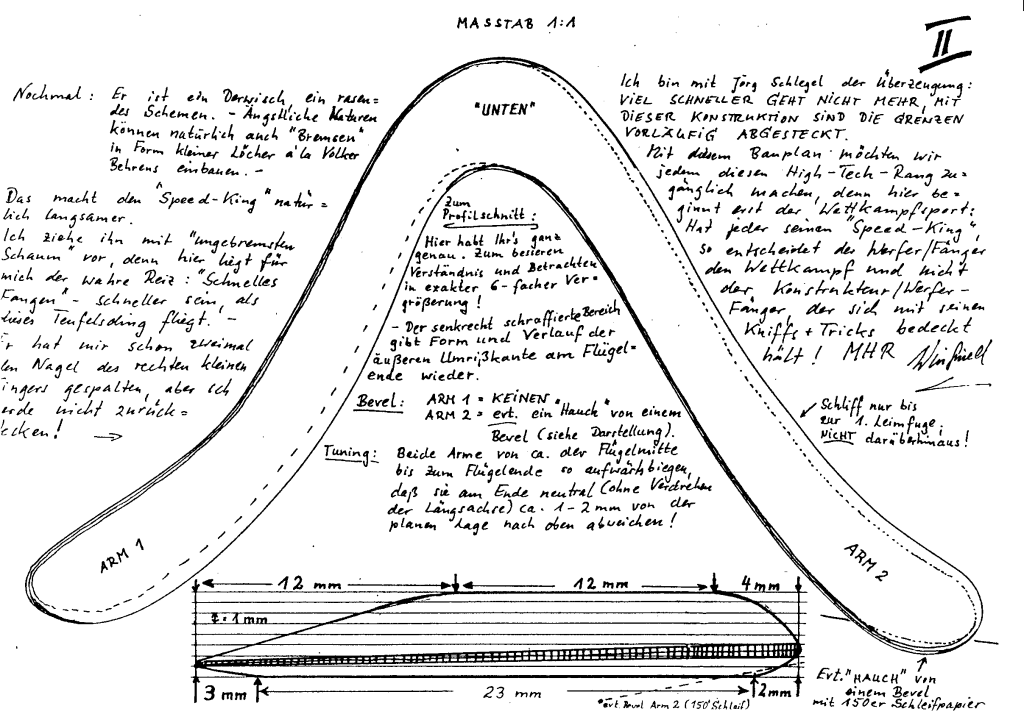 MASSTAB 1:1
II
Nochmal: Er ist ein Derwisch, ein rasen=
des Schemen. - Ängstliche Naturen
können natürlich auch "Bremsen"
in Form kleiner Löcher á la Volker
Behrens einbauen. -
Das macht den "Speed-King" natür=
lich langsamer.
Ich ziehe ihn mit "ungebremsten
Schaum" vor, denn hier liegt für
mich der wahre Reiz: "Schnelles
Fangen" - schneller sein, als
dieses Teufelsding fliegt. -
Er hat mir schon zweimal
den Nagel des rechten kleinen
Fingers gespalten, aber ich
werde nicht zurück=
stecken!
"UNTEN"
Zum
Profilschnitt:
Hier habt Ihr's ganz
genau. Zum besseren
Verständnis und Betrachten
in exakter 6-facher Ver=
größerung!
- Der senkrecht schraffierte Bereich
gibt Form und Verlauf der
äußeren Umrißkante am Flügel=
ende wieder.
Bevel: ARM 1 = KEINEN
ARM 2 = evt. ein "Hauch" von einem
Bevel (siehe Darstellung).
Tuning: Beide Arme von ca. der Flügelmitte
bis zum Flügelende so aufwärtsbiegen,
daß sie am Ende neutral (ohne Verdrehen
der Längsachse) ca. 1-2 mm von der
planen Lage nach oben abweichen!
Ich bin mit Jörg Schlegel der Überzeugung:
VIEL SCHNELLER GEHT NICHT MEHR, MIT
DIESER KONSTRUKTION SIND DIE GRENZEN
VORLÄUFIG ABGESTECKT.
Mit diesem Bauplan möchten wir
jedem diesen High-Tech-Rang zu=
gänglich machen, denn hier be=
ginnt erst der Wettkampfsport:
Hat jeder seinen "Speed-King",
so entscheidet der Werfer/Fänger
den Wettkampf und nicht
der Konstrukteur/Werfer-
Fänger, der sich mit seinen
Kniffs + Tricks bedeckt
hält! MHR Winfried
Schliff nur bis
zur 1. Leimfuge,
NICHT darüberhinaus!
ARM 1
ARM 2
12 mm 12 mm 4 mm
= 1 mm
3 mm 23 mm 2 mm
evt. Bevel Arm 2 (150' Schleif)
Evt. "HAUCH" von
einem Bevel
mit 150er Schleifpapier